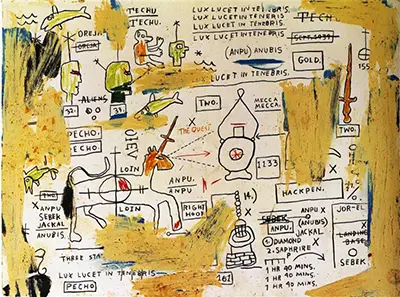 TECHU
TECHU.
LUX LUCET IN TENEBRIS.
LUX LUCET IN TENEBRIS
LUX LUCET IN TENBRIS.
LUX LUCET IN TENEBRIS.
TECH.
OREJA.
OREJA
(ANPU) ANUBIS
SEPT. 1039
GOLD.
155
LUCET IN TENEBRIS.
ALIENS
32.
33.
TWO.
MECCA
MECCA.
TWO.
PECHO.
PECHO.
THE QUEST
1133
LOIN
ANPU.
ANPU
TWO.
ANPU
SEBEK
JACKAL
ANUBIS
LOIN
RIGHT
HOOF
HACKDEN.
SEBEK
ANPU.
ANPU X
(ANUBIS)
JACKAL
JOR-EL
LANDING
BASE
SEBEK.
DIAMOND
2-SAPHRIRE
THREE STA
LUX LUCET IN TENEBRIS
PECHO
181
1 HR 40 MINS.
1 HR 40 MINS.
1 HR 40 MINS.